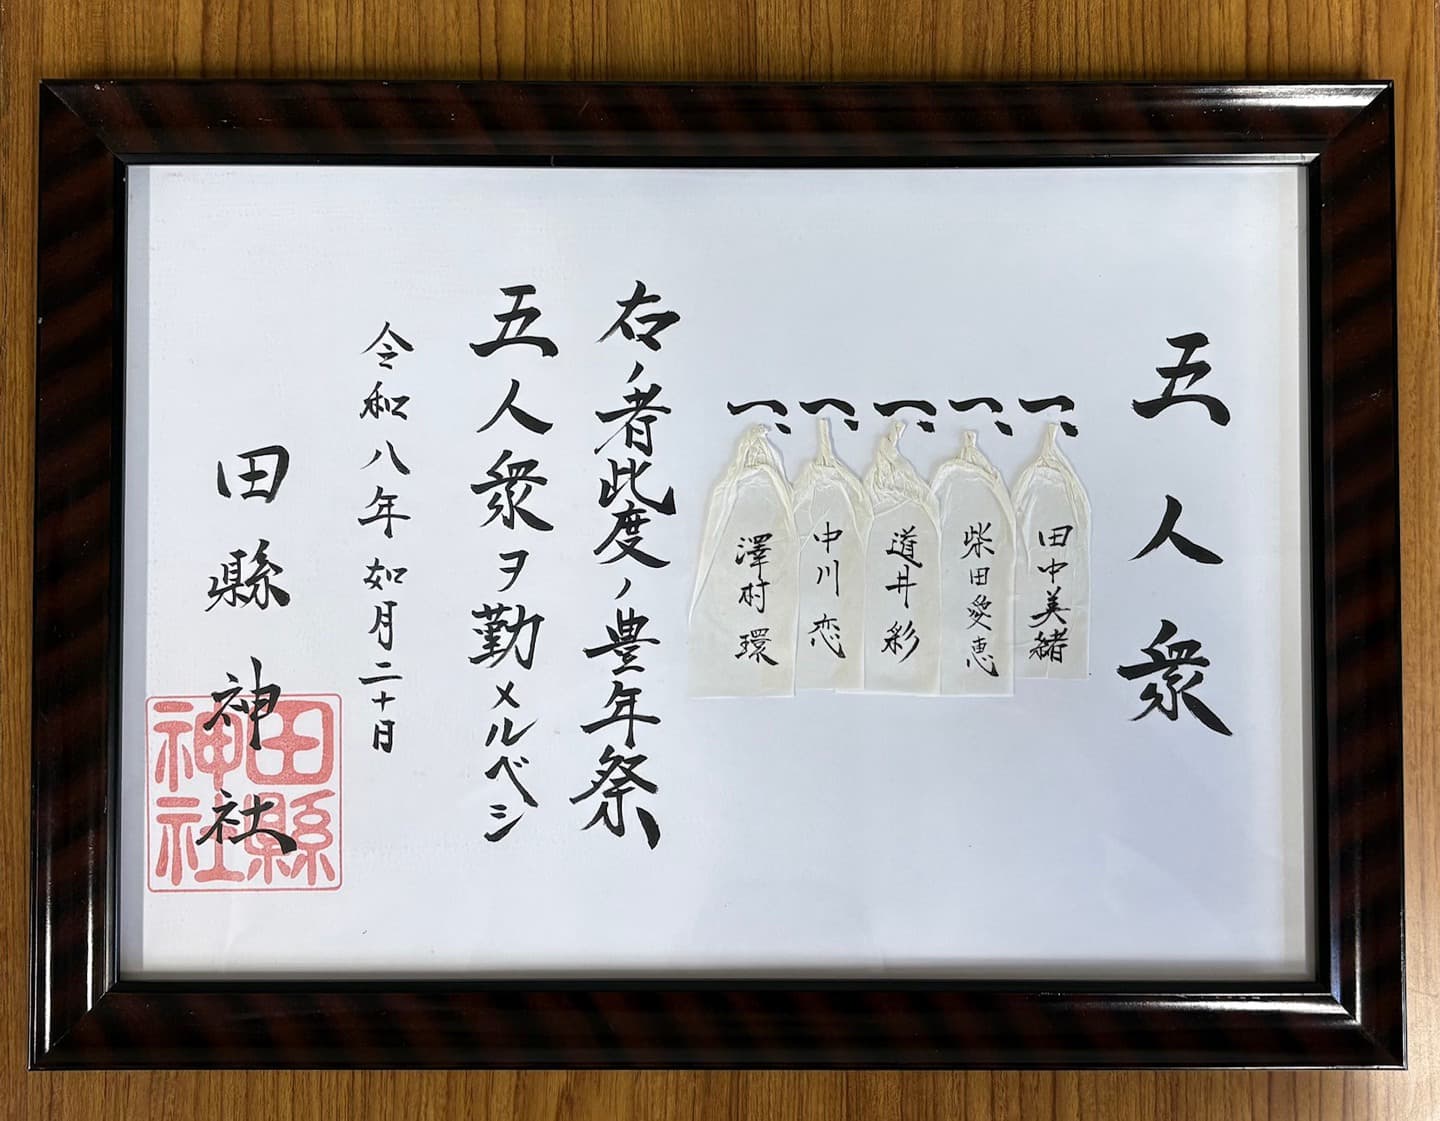 五人衆
一、田中美緒
一、柴田愛恵
一、道井彩
一、中川恋
一、澤村環
右ノ者此度ノ豊年祭
五人衆ヲ勤メルベシ
令和八年如月二十日
田縣神社
田縣神社